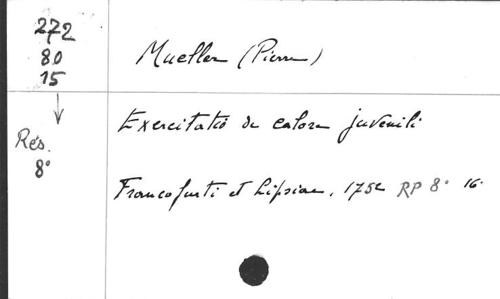 272
80
15
Mueller (Pierre)
Exercitatio de calore juvenili
Rés.
8°
Francofurti et Lipsiae, 175e RP 8° 16.